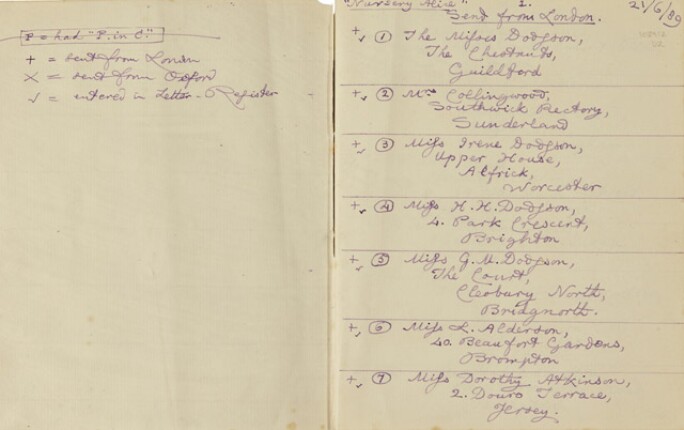 P = had "P. in C."
+ = sent from London
X = sent from Oxford
✓ = entered in Letter-Register
"Nursery Alice" 1. 21/6/89
Send from London.
+ ✓ ① The Misses Dodgson,
The Chestnuts,
Guildford
+ ✓ ② Mrs Collingwood,
Southwick Rectory,
Sunderland
+ ✓ ③ Miss Irene Dodgson,
Upper House,
Alfrick,
Worcester
+ ✓ ④ Miss H. H. Dodgson,
4. Park Crescent,
Brighton
+ ✓ ⑤ Miss G. M. Dodgson,
The Court,
Cleobury North,
Bridgnorth.
+ ✓ ⑥ Miss L. Alderson,
40. Beaufort Gardens,
Brompton
+ ✓ ⑦ Miss Dorothy Atkinson,
2. Douro Terrace,
Jersey.